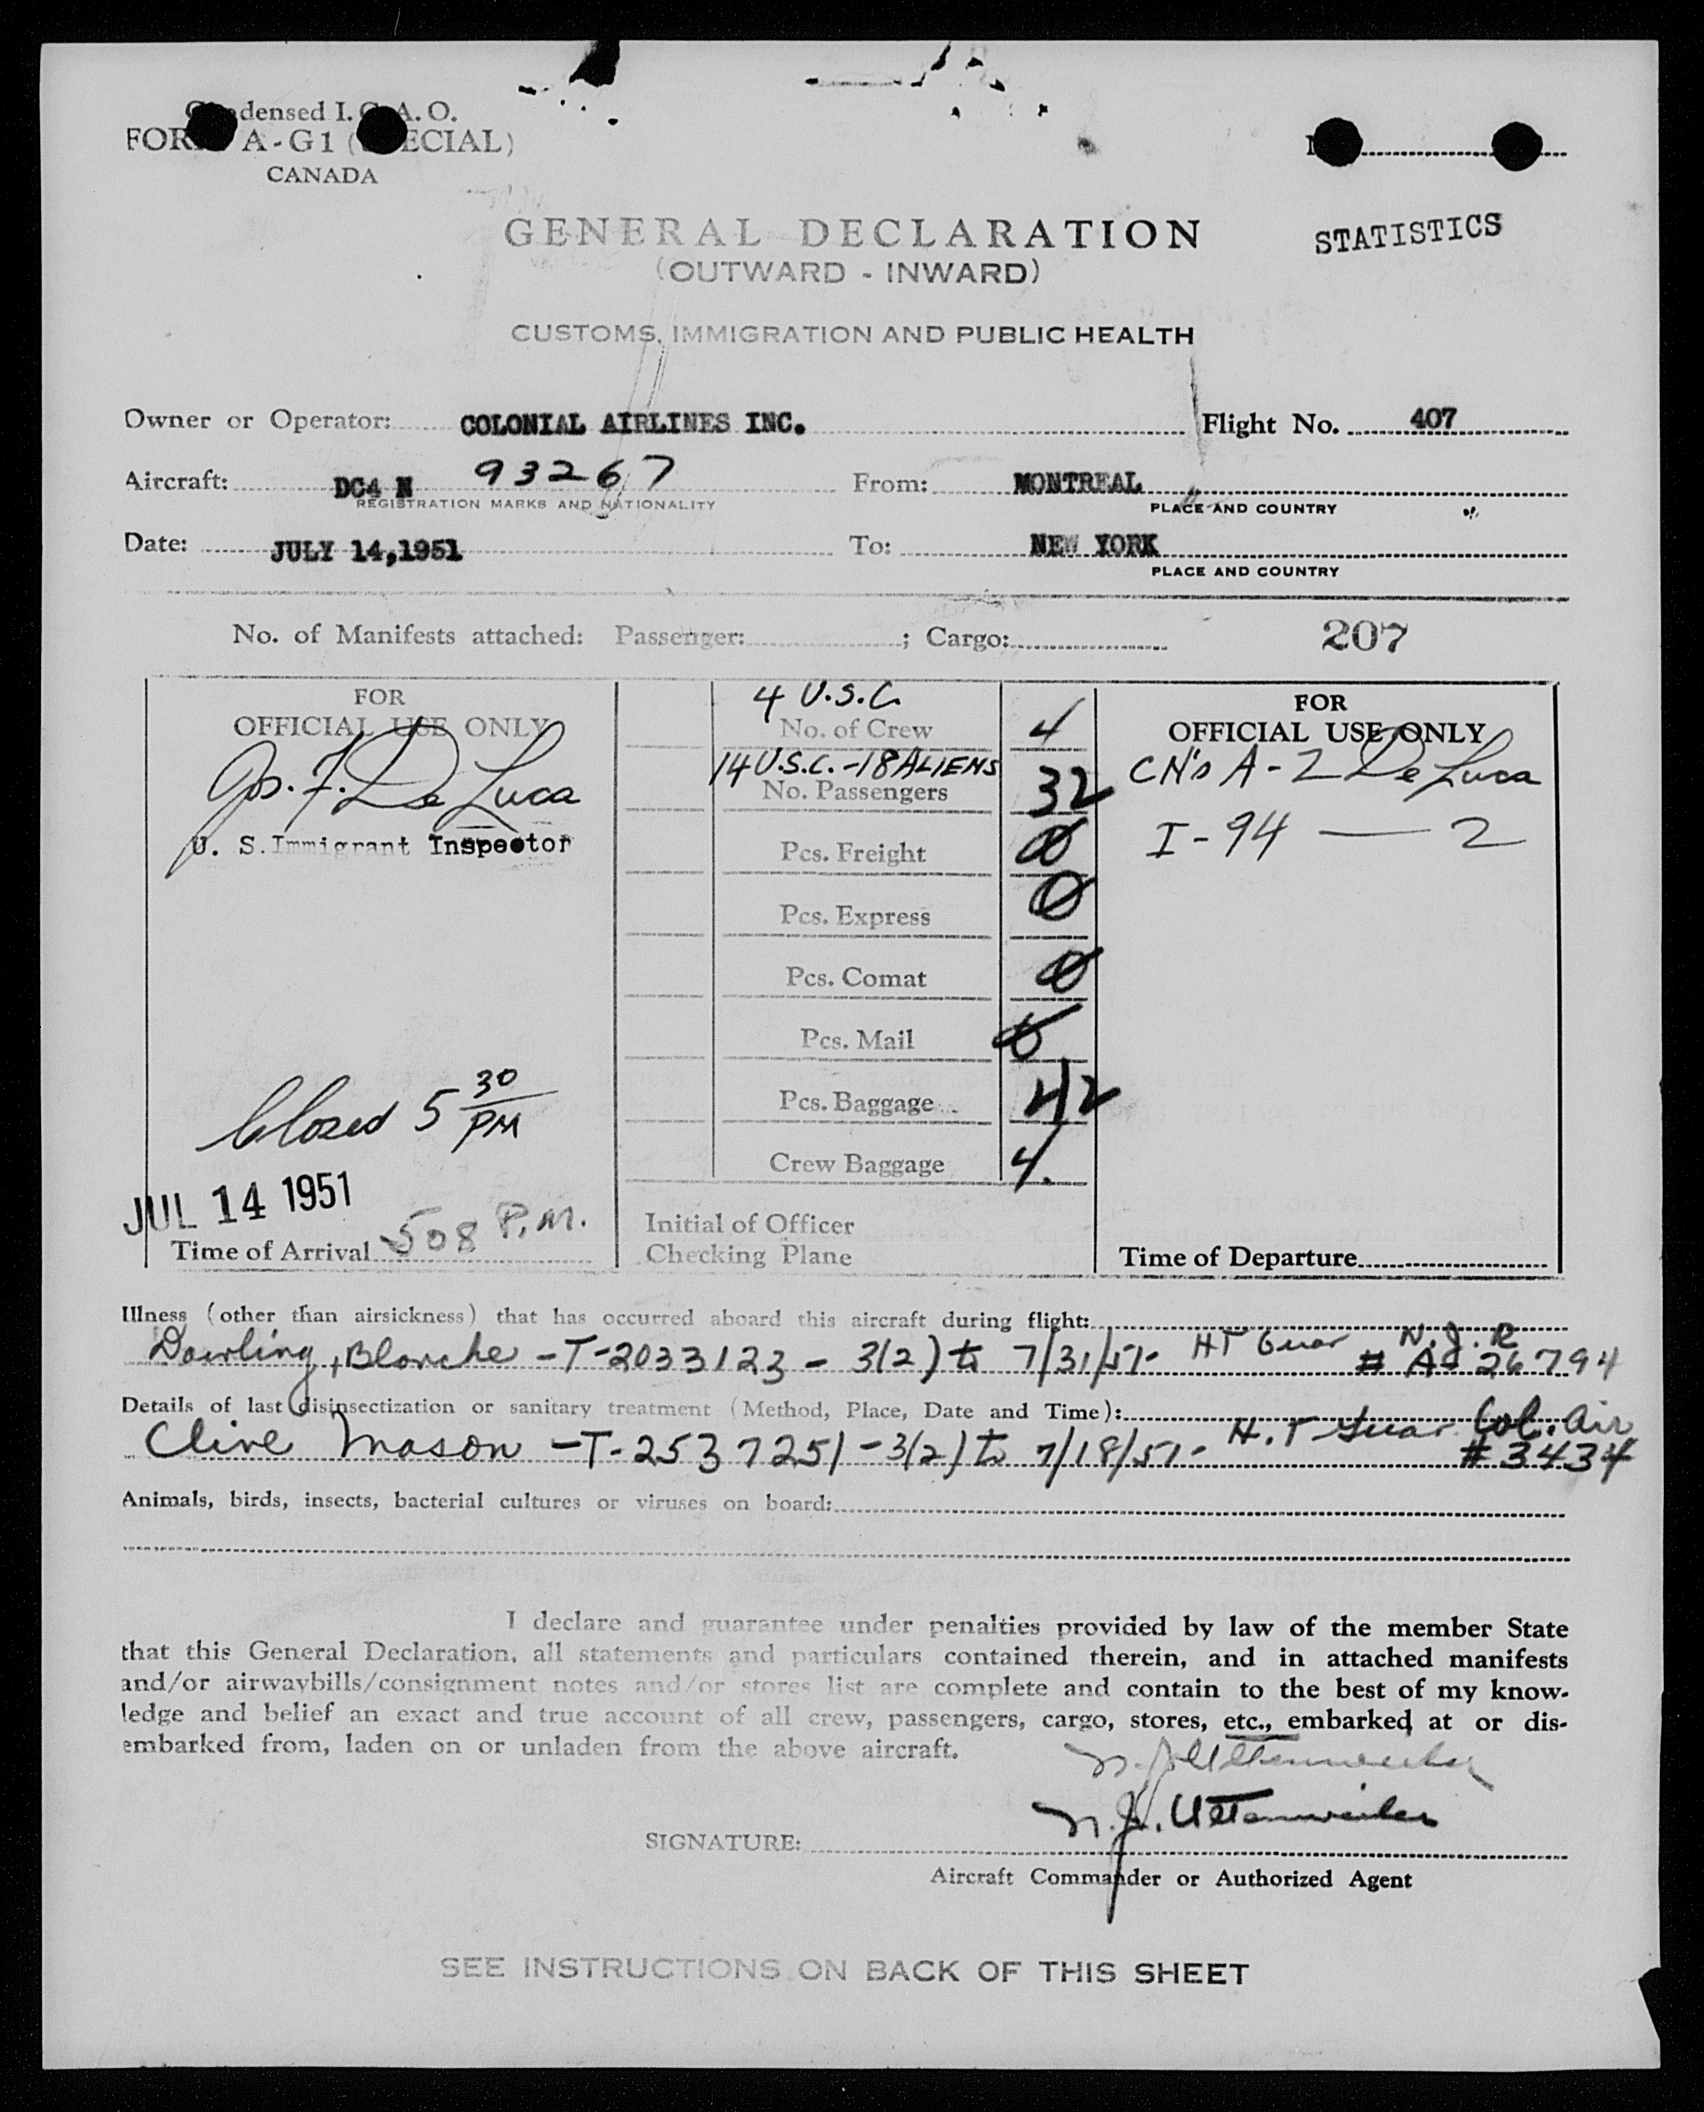 Condensed I.C.A.O.
FORM A-G1 (SPECIAL)
CANADA
STATISTICS
GENERAL DECLARATION
(OUTWARD - INWARD)
CUSTOMS, IMMIGRATION AND PUBLIC HEALTH
Owner or Operator: COLONIAL AIRLINES INC. Flight No. 407
Aircraft: DC4 N 93267 From: MONTREAL
REGISTRATION MARKS AND NATIONALITY PLACE AND COUNTRY
Date: JULY 14,1951 To: NEW YORK
PLACE AND COUNTRY
No. of Manifests attached: Passenger: ; Cargo: 207
FOR
OFFICIAL USE ONLY
Jos. F. De Luca
U. S. Immigrant Inspector
Closed 5 30 PM
JUL 14 1951
Time of Arrival 508 P.M.
4 U.S.C.
No. of Crew 4
14 U.S.C. - 18 ALIENS
No. Passengers 32
Pcs. Freight 0
Pcs. Express 0
Pcs. Comat 0
Pcs. Mail 0
Pcs. Baggage 42
Crew Baggage 4.
Initial of Officer
Checking Plane
FOR
OFFICIAL USE ONLY
CN's A-2 De Luca
I-94 — 2
Time of Departure
Illness (other than airsickness) that has occurred aboard this aircraft during flight:
Dowling, Blanche - T-2033123 - 3(2) to 7/31/51 - HT Guar N.J.R # A- 26794
Details of last disinsectization or sanitary treatment (Method, Place, Date and Time):
Clive Mason - T-2537251 - 3(2) to 7/18/51 - H.T Guar Col. Air # 3434
Animals, birds, insects, bacterial cultures or viruses on board:
I declare and guarantee under penalties provided by law of the member State
that this General Declaration, all statements and particulars contained therein, and in attached manifests
and/or airwaybills/consignment notes and/or stores list are complete and contain to the best of my know-
ledge and belief an exact and true account of all crew, passengers, cargo, stores, etc., embarked at or dis-
embarked from, laden on or unladen from the above aircraft.
SIGNATURE:
Aircraft Commander or Authorized Agent
SEE INSTRUCTIONS ON BACK OF THIS SHEET